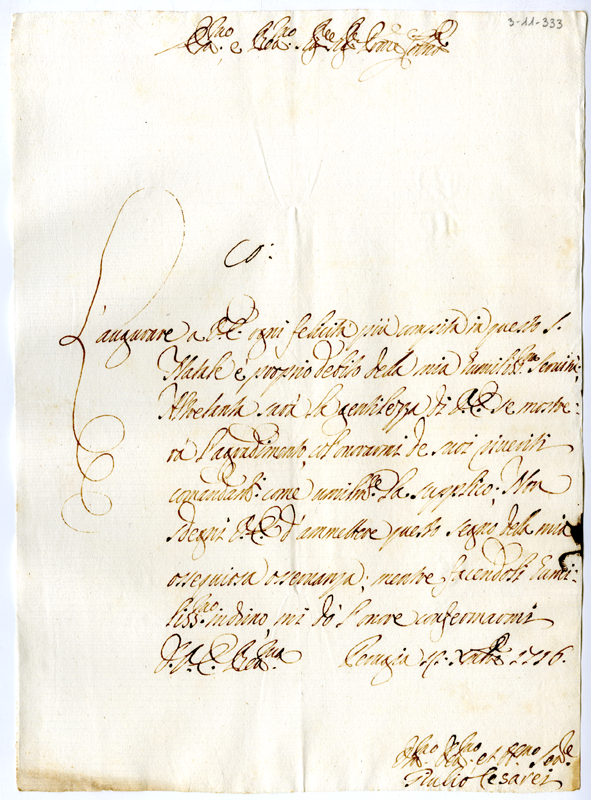 3-11-333
Ill.mo e Rev.mo Sig.re Sig.re P.ron Col.mo
L'augurare a V.E. ogni felicità più compita in questo S.
Natale è proprio debito della mia humiliss.ma Servitù;
Altretanta sarà la gentilezza di V.E. se mostre-
rà l'agradimento, col onorarmi de suoi pireriti
comandam.ti come umilm.te la supplico; Non
sdegni V.E. d'ammettere questo segno della mia
ossequiosa osservanza; mentre facendoli humi-
liss.mo inchino, mi dò l'onore confermarmi
Perugia 1716.
Giulio Cesarei